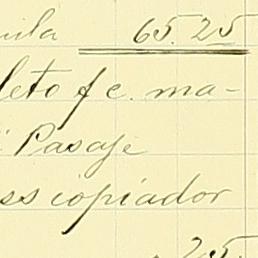 uila 65.25
leto f c. ma-
Pasaje
ss copiador
25.